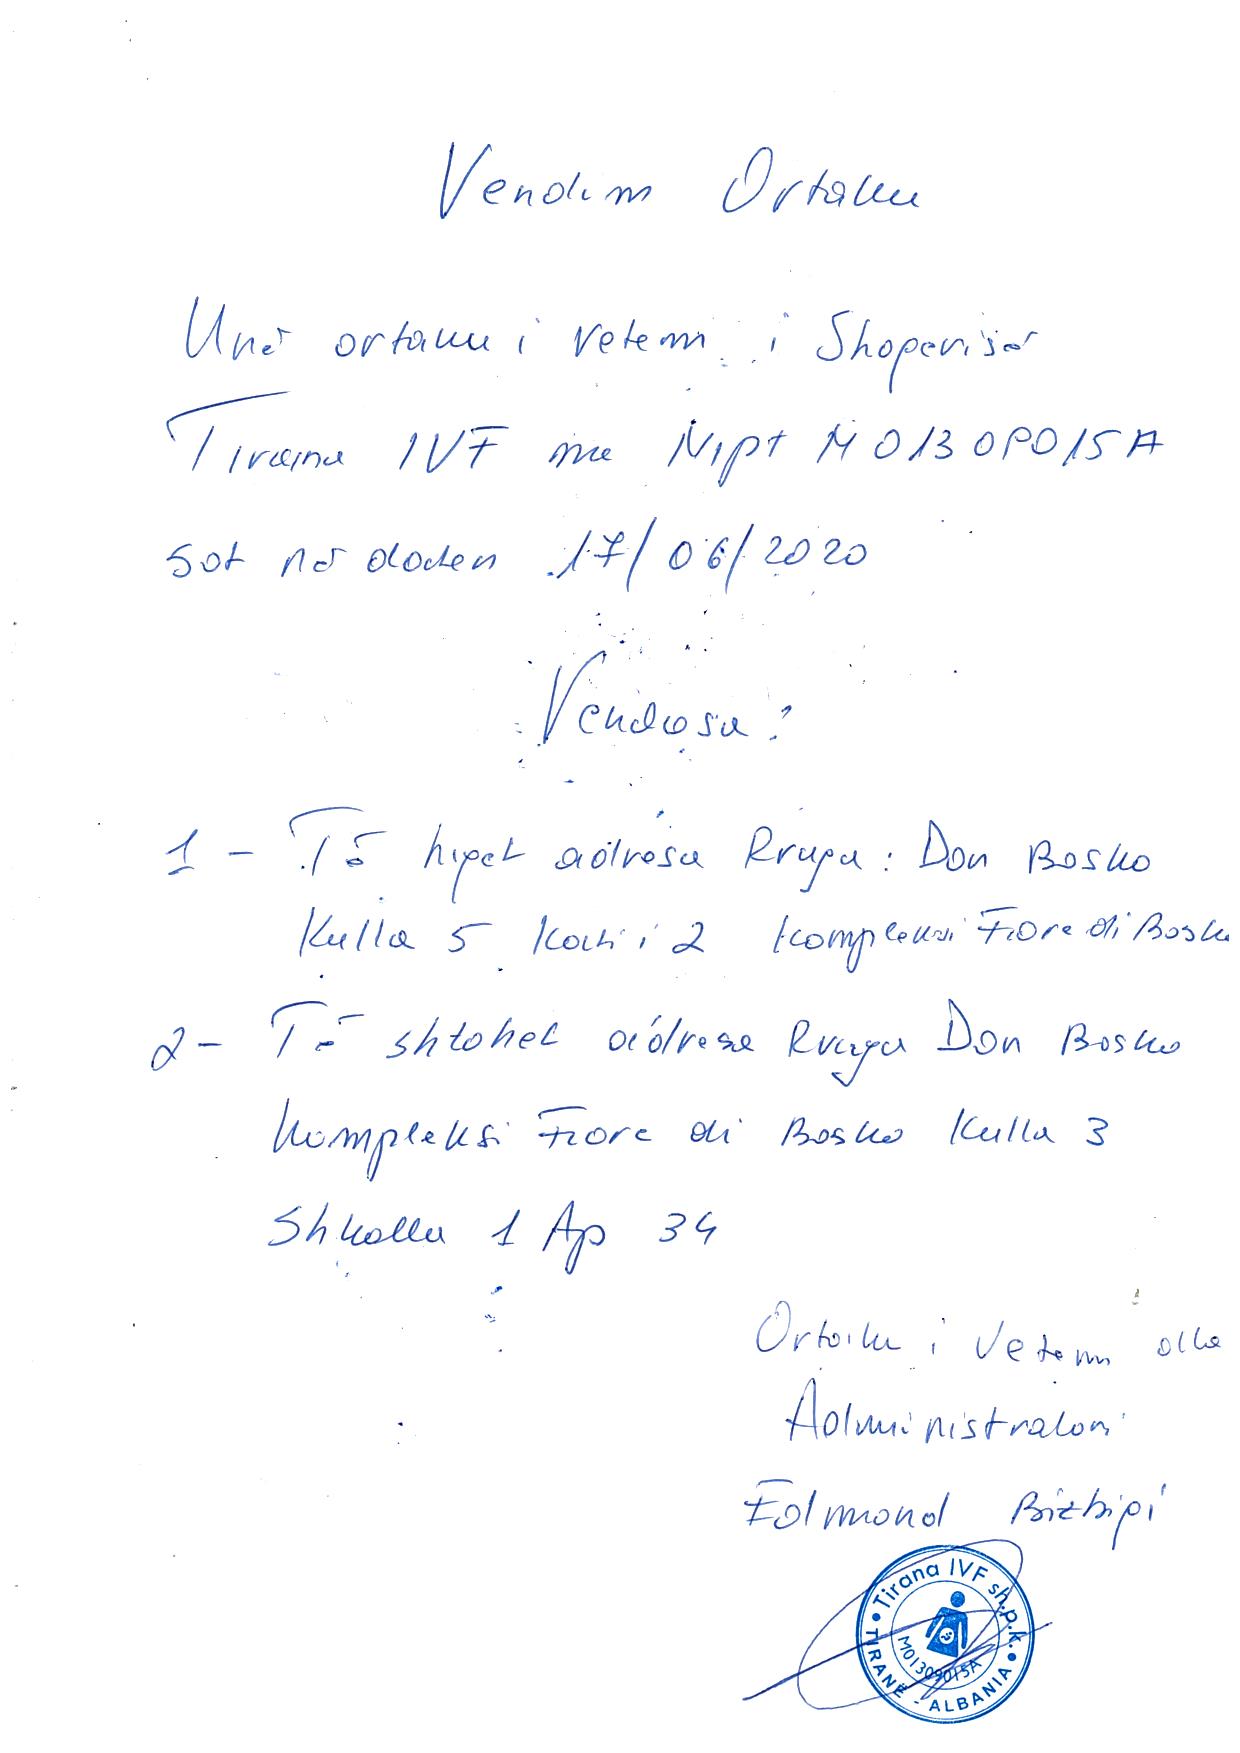 Vendim Ortaku
Unë ortaku i vetem i Shoperisë
Tirana IVF me Nipt M01309015A
sot në daten 17/06/2020
Vendosa:
1 - Të hiqet adresa Rruga: Don Bosko
Kulla 5 Kati i 2 Kompleksi Fiore di Bosko
2 - Të shtohet adresa Rruga Don Bosko
Kompleksi Fiore di Bosko Kulla 3
Shkalla 1 Ap 34
Ortaku i Vetem dhe
Administratori
Edmond Bizhipi
Tirana IVF sh.p.k.
M01309015A
TIRANË - ALBANIA